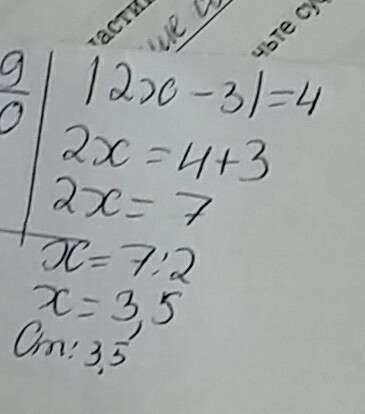 части
ие
чьте су
9
0
|2x - 3| = 4
2x = 4 + 3
2x = 7
x = 7 : 2
x = 3,5
От: 3,5